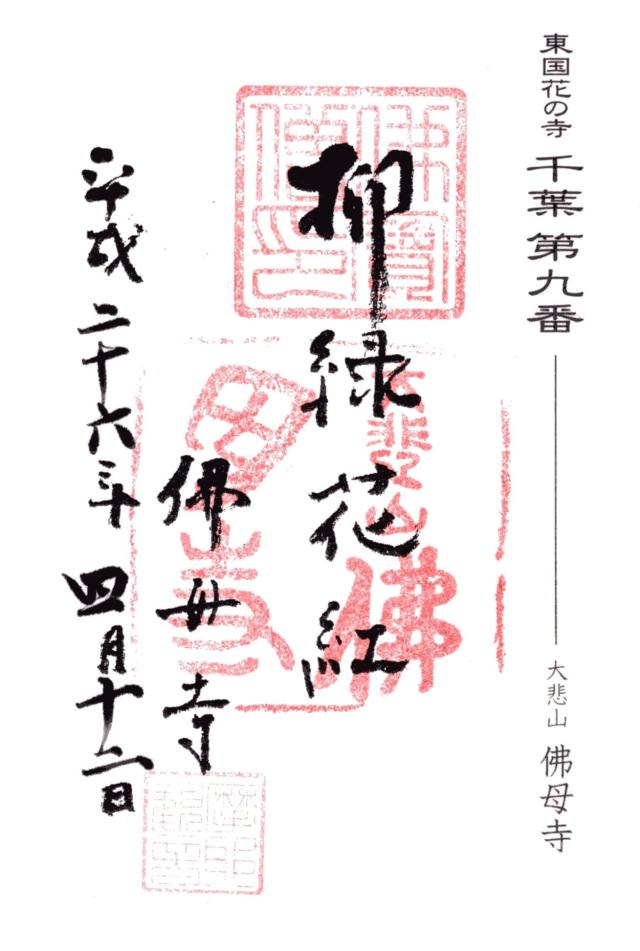 東国花の寺 千葉第九番 大悲山 佛母寺
佛寶
僧印
柳緑花紅
大悲山
佛
母寺
佛母寺
平成二十六年 四月十二日